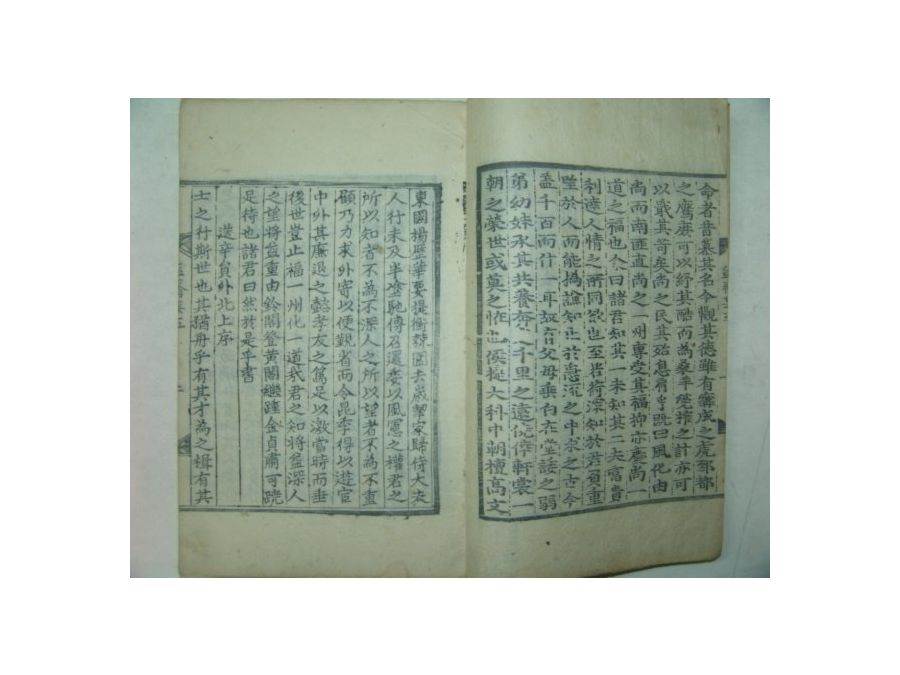 命者昔慕其名今觀其德雖有鑄成之虎邪都
之鷹庶可以紓其酷而為桑羊繞搉之計亦可
以戢其苛矣尚之民其始息肩乎既曰風化由
尚而南匪直尚之一州專受其福抑亦慶尚一
道之福也余曰諸君知其一未知其二夫富貴
利達人情之所同欲也至若荷深知於君負重
望於人而能撝謙知止於急流之中求之古今
盖千百而什一耳
父母垂白在堂諼之弱
弟幼妹承其共養奔
千里之遠
軒裳一
朝之榮世或莫之
侯挺大科中朝壇高文
東國楊歷華要提衡棘園去歲挈家歸侍大夫
人行未及半塗馳傳召還委以風憲之權君之
所以知者不為不深人之所以望者不為不重
顧乃力求外寄以便觀省而令昆季得以遊宦
中外其廉退之懿孝友之篤足以激當時而垂
後世豈止福一州化一道哉君之知將益深人
之望將益重由鈴閣登黃閣繼踵金貞肅可蹺
足待也諸君曰然於是乎書
送辛員外北上序
士之行斯世也其猶舟乎有其才為之楫有其